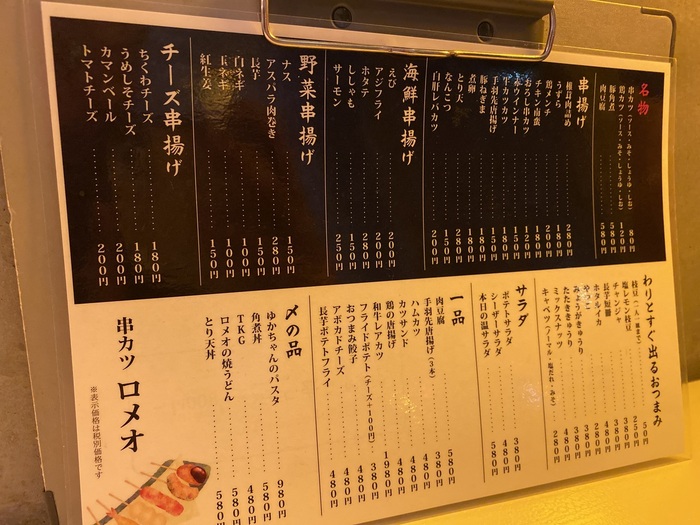 名物
串カツ(ソース・みそ・しょうゆ・しお) 80円
鶏カツ(ソース・みそ・しょうゆ・しお) 120円
豚角煮 580円
肉豆腐 580円
串揚げ
椎茸肉詰め 280円
うずら 180円
鶏メンチ 180円
チキン南蛮 200円
おろし串カツ 120円
赤ウインナー 150円
牛カツカツ 180円
手羽先唐揚げ 150円
豚ねぎま 180円
煮卵 180円
とり天 280円
なんこつ 150円
白肝レバカツ 200円
海鮮串揚げ
えび 200円
アジフライ 200円
ホタテ 280円
ししゃも 150円
サーモン 250円
野菜串揚げ
ナス 150円
アスパラ肉巻き 280円
長芋 150円
白ネギ 100円
玉ネギ 100円
紅生姜 150円
チーズ串揚げ
ちくわチーズ 180円
うめしそチーズ 180円
カマンベール 200円
トマトチーズ 200円
わりとすぐ出るおつまみ
枝豆(一人一個まで) 50円
塩レモン枝豆 250円
チャンジャ 380円
長芋短冊 380円
ホタルイカ 480円
やっこ 280円
みょうがきゅうり 380円
たたききゅうり 380円
ミックスナッツ 480円
キャベツ(ノーマル・塩だれ・みそ) 280円
サラダ
ポテトサラダ 380円
シーザーサラダ 480円
本日の温サラダ 580円
一品
肉豆腐 580円
手羽先唐揚げ(3本) 380円
ハムカツ 480円
カツサンド 480円
鶏の唐揚げ 480円
和牛レアカツ 1980円
フライドポテト(チーズ+100円) 380円
おつまみ餃子 480円
アボカドチーズ 480円
長芋ポテトフライ 480円
〆の品
ゆかちゃんのパスタ 980円
角煮丼 580円
TKG 480円
ロメオの焼うどん 580円
とり天丼 580円
串カツ ロメオ
※表示価格は税別価格です